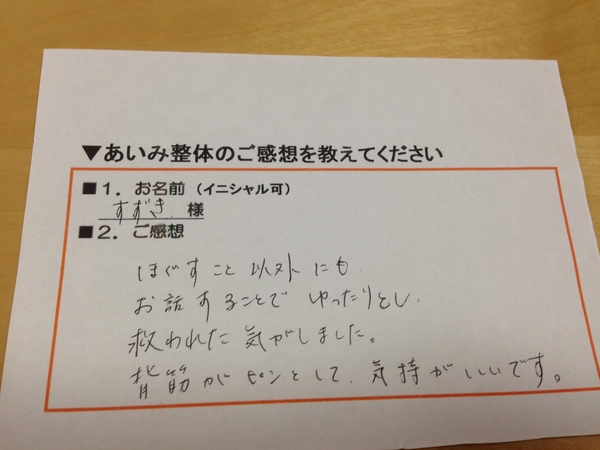 ▼あいみ整体のご感想を教えてください
■1．お名前（イニシャル可）
すずき 様
■2．ご感想
ほぐすこと以外にも
お話することでゆったりとし、
救われた気がしました。
背筋がピンとして、気持がいいです。